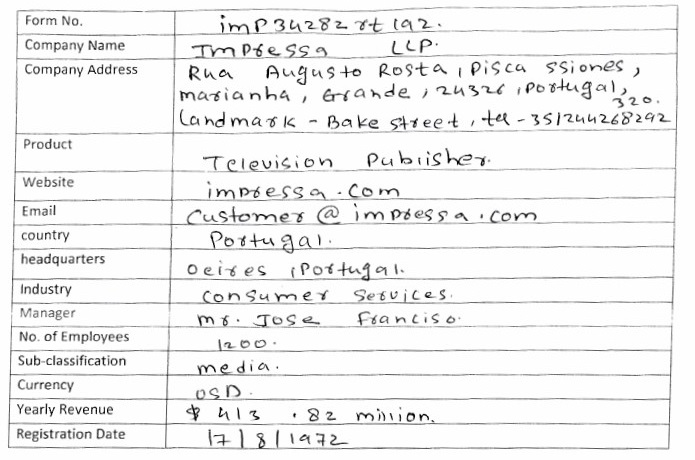 Form No. imp34282rt192.
Company Name Impressa LLP.
Company Address Rua Augusto Rosta, Pisca ssiones,
marianha, Grande, 24326, Portugal,
320.
Landmark - Bake street, tel - 351244268292
Product Television Publisher.
Website impressa.com
Email Customer@impressa.com
country Portugal.
headquarters Oeires, Portugal.
Industry Consumer Services.
Manager mr. Jose Franciso.
No. of Employees 1200.
Sub-classification media.
Currency USD.
Yearly Revenue $ 413 .82 million.
Registration Date 17/8/1972